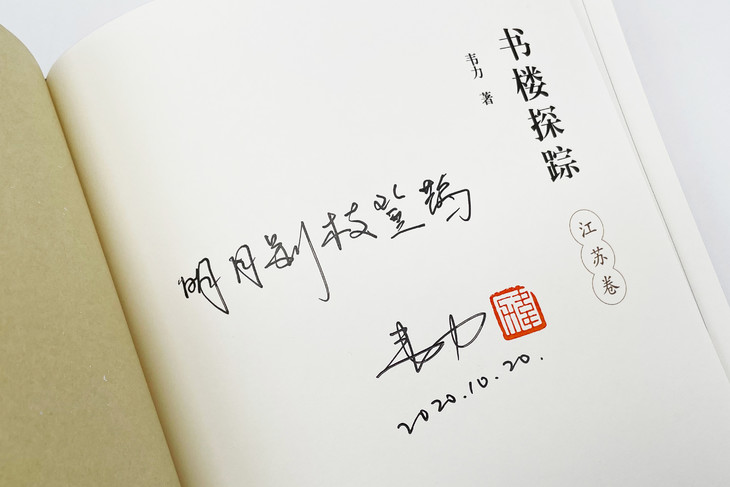 书楼探踪
韦力 著
江苏卷
明月别枝惊鹊
韦力
2020.10.20.